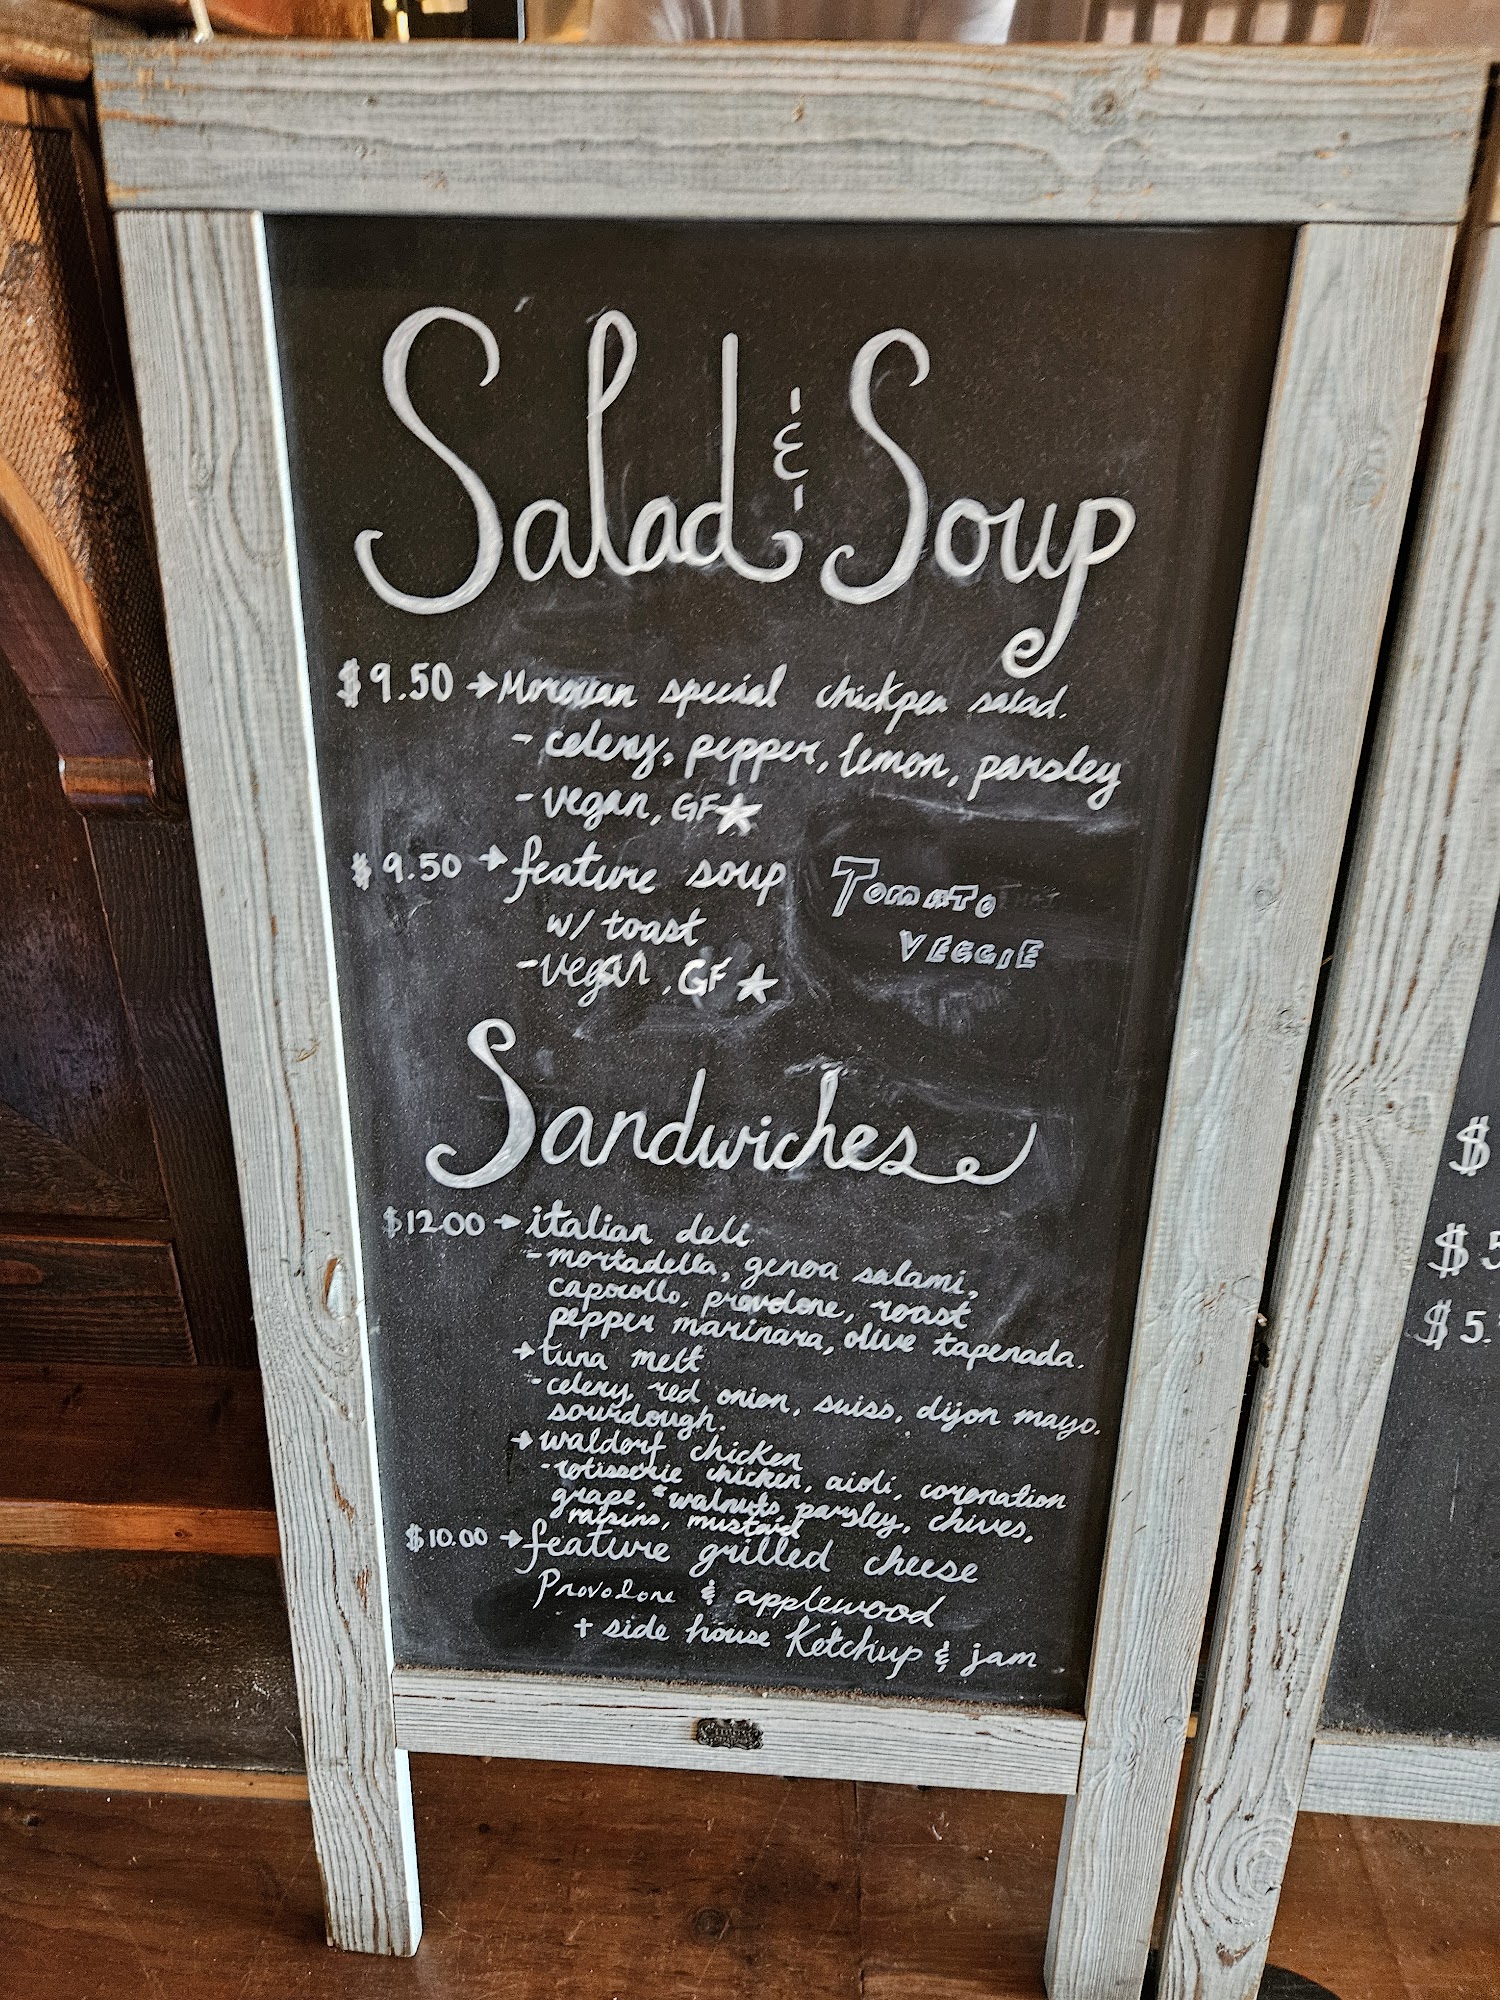 Salad & Soup
$9.50 → Moroccan special chickpea salad.
- celery, pepper, lemon, parsley
- vegan, GF★
$9.50 → feature soup
TOMATO
w/ toast
VEGGIE
- vegan, GF ★
Sandwiches
$12.00 → italian deli
- mortadella, genoa salami,
capocollo, provolone, roast
pepper marinara, olive tapenada.
→ tuna melt
- celery, red onion, suiss, dijon mayo.
sourdough.
→ waldorf chicken
- rotisserie chicken, aioli, coronation
grape, *walnuts, parsley, chives,
raisins, mustard
$10.00 → feature grilled cheese
Provolone & applewood
+ side house Ketchup & jam
$
$5
$5.